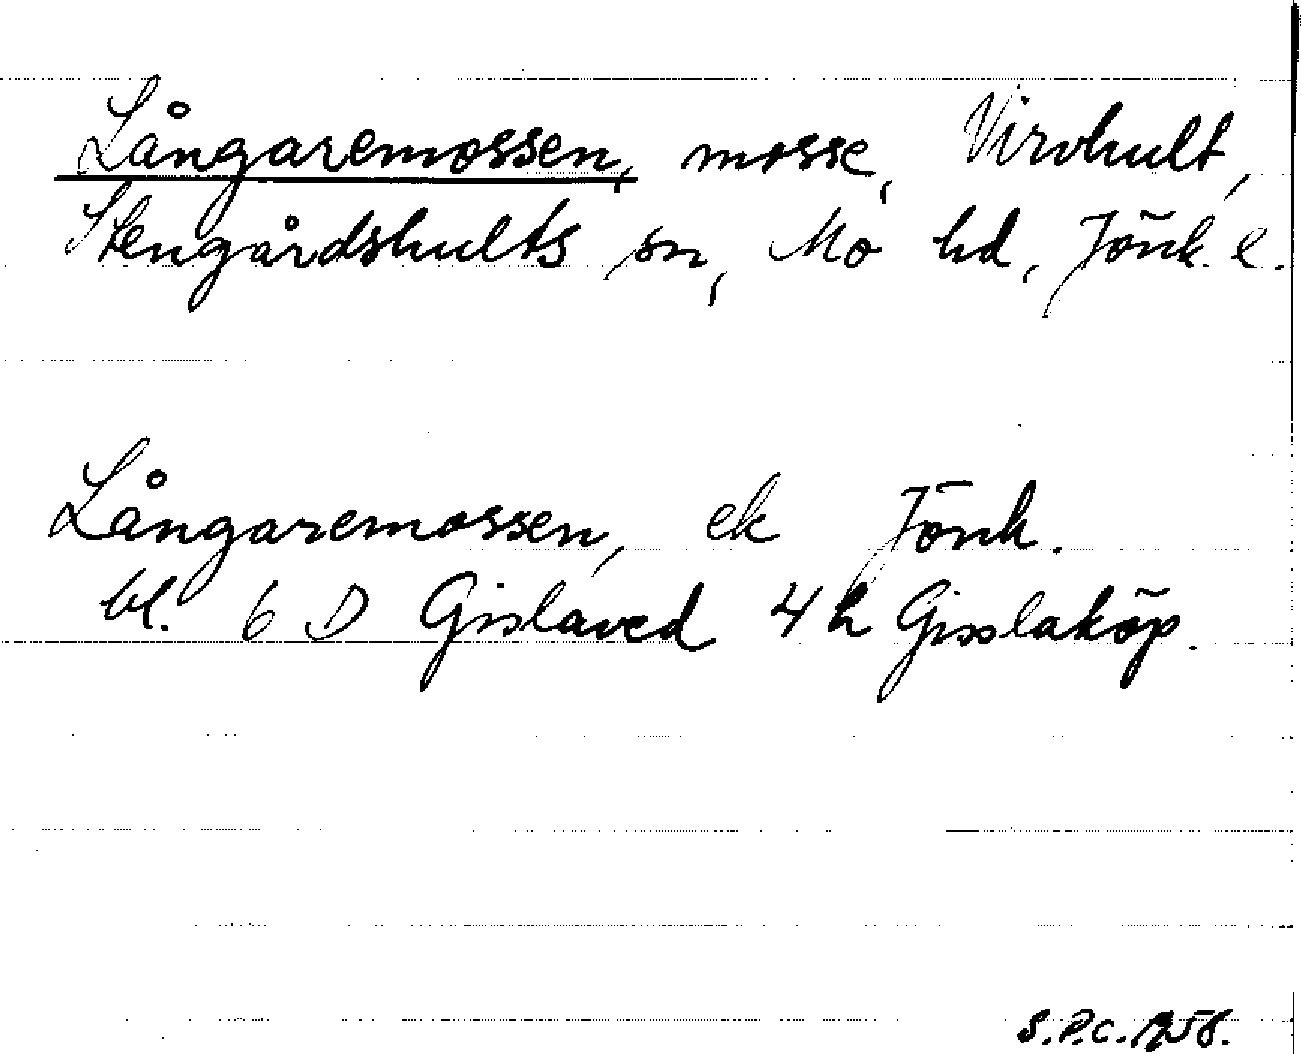 Långaremossen, mosse, Virvhult,
Stengårdshults sn, Mo hd, Jönk. l.
Långaremossen, ek Jönk.
bl. 6 D Gislaved 4 h Gisslaköp.
S.P.C. 1958.